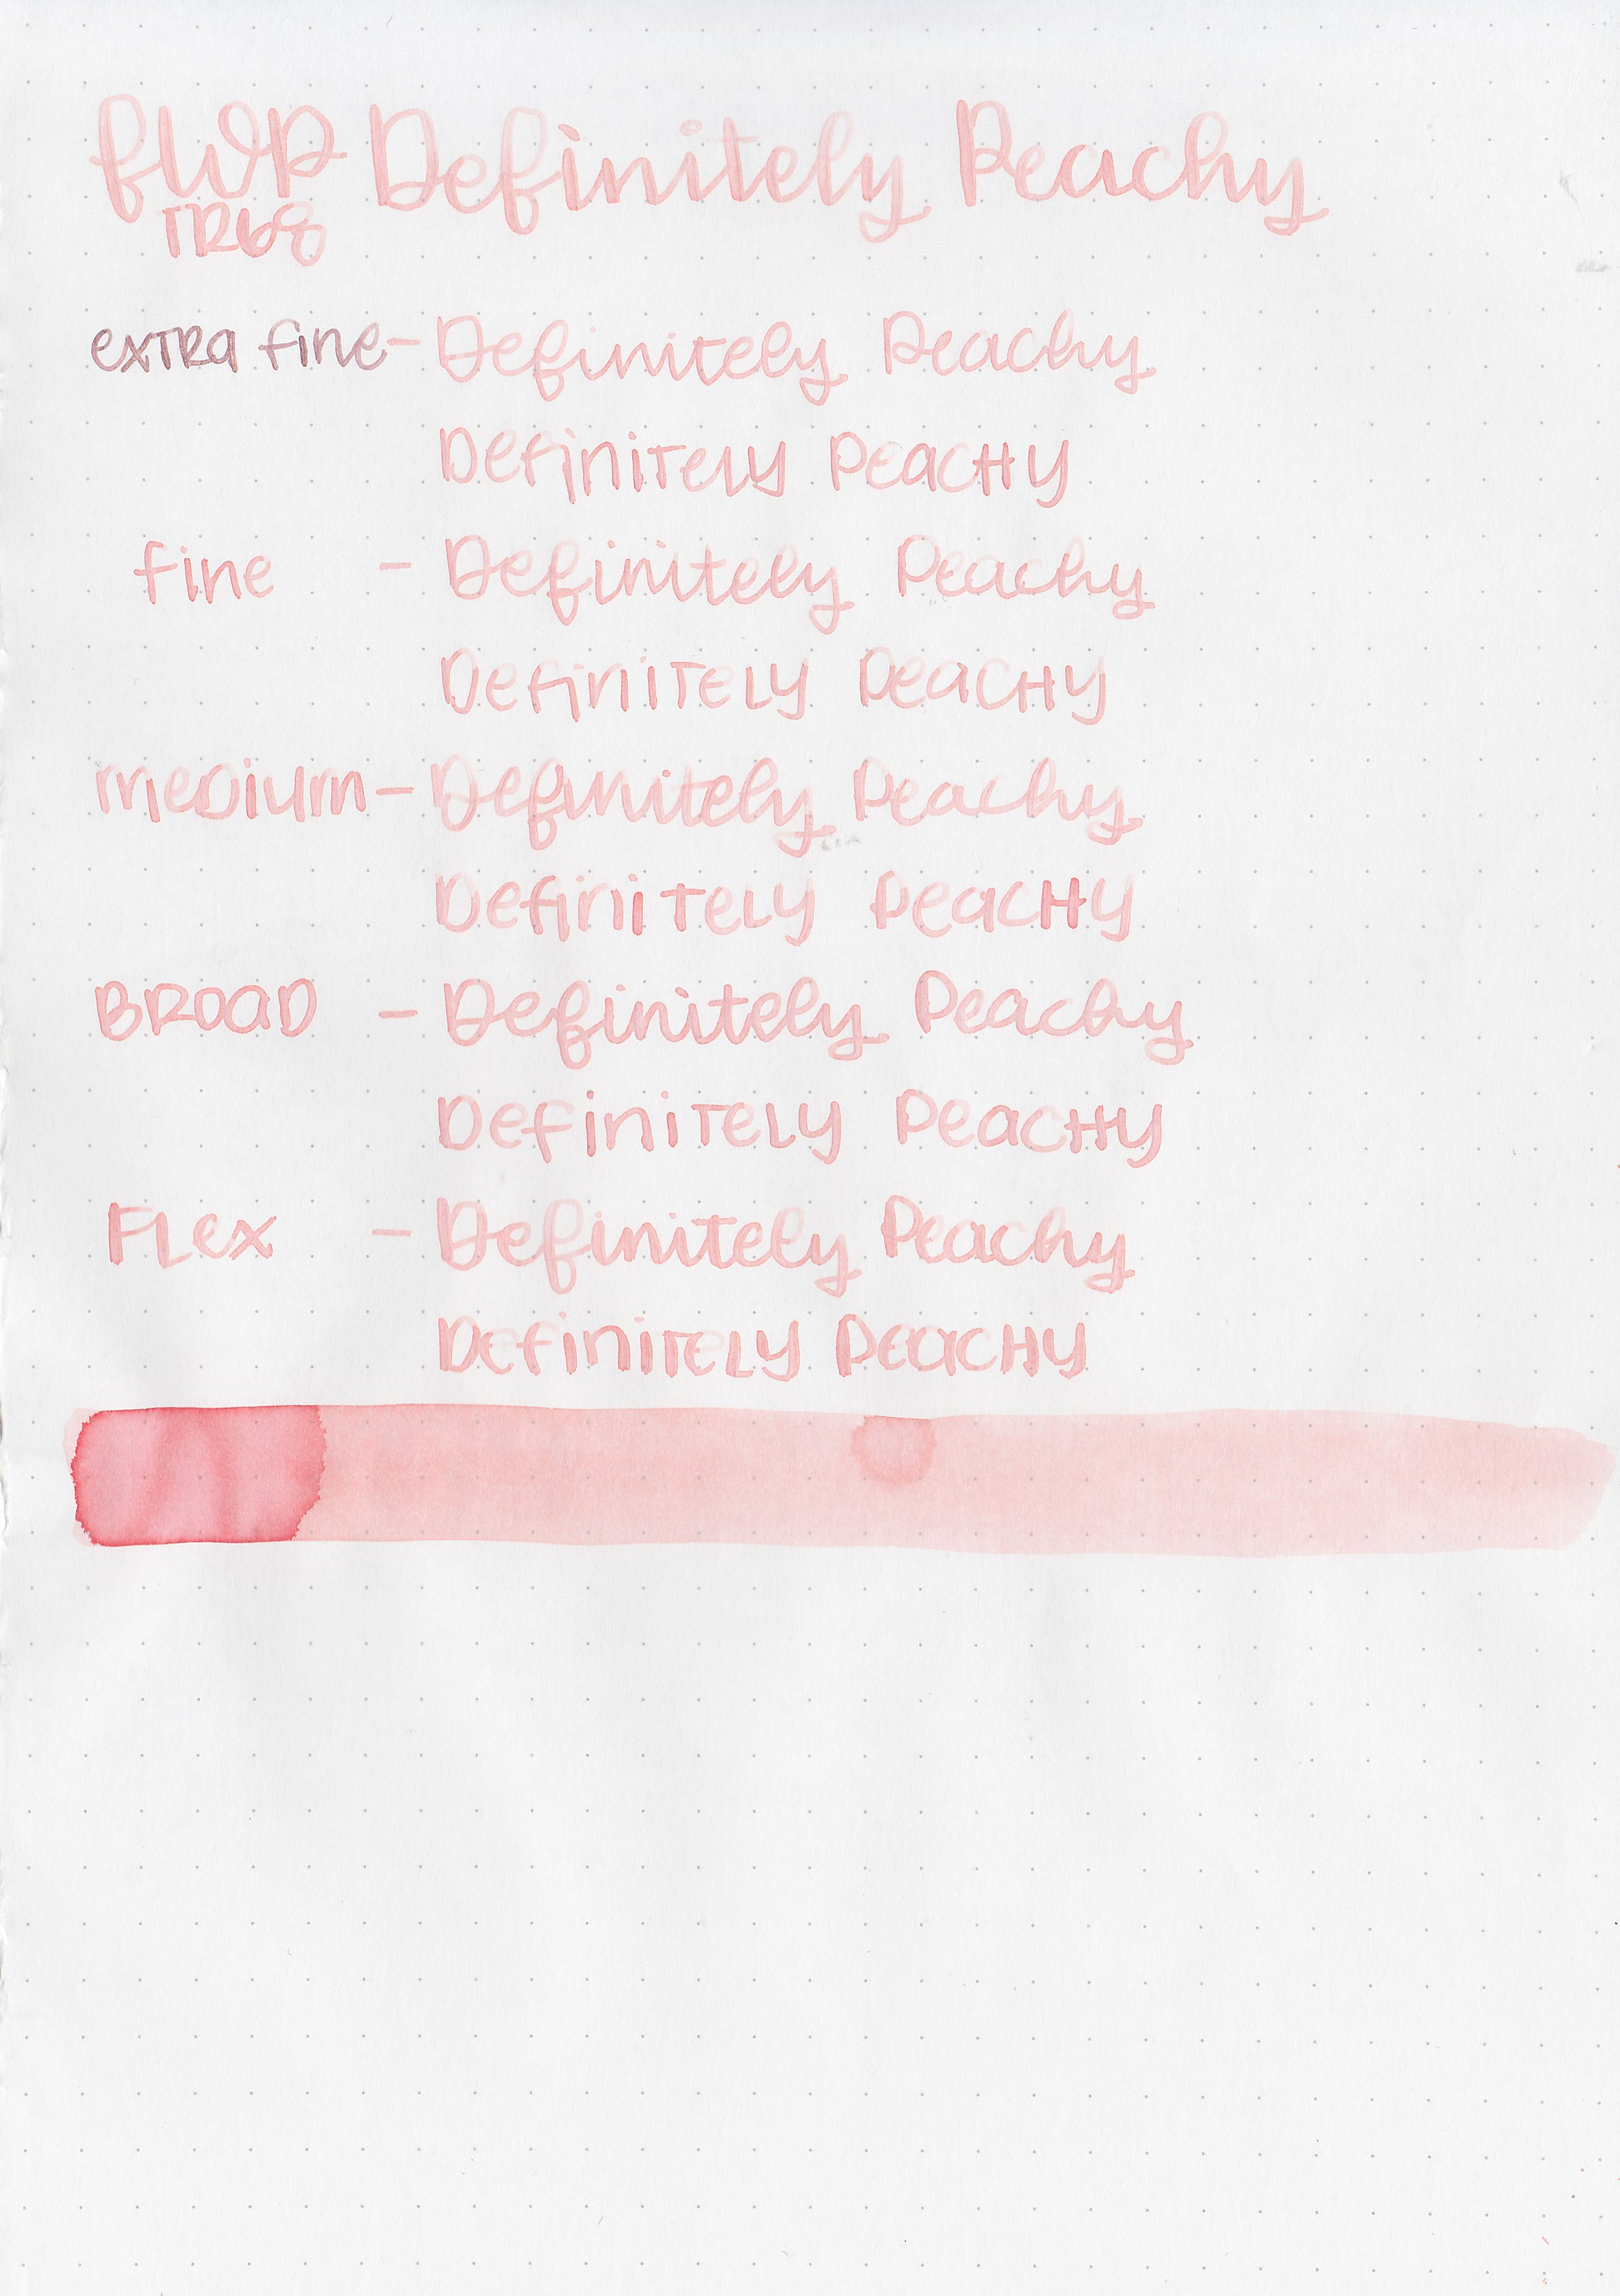 FWP Definitely Peachy
TR68
extra fine - Definitely Peachy
Definitely Peachy
fine - Definitely Peachy
Definitely Peachy
medium - Definitely Peachy
Definitely Peachy
BROAD - Definitely Peachy
Definitely Peachy
Flex - Definitely Peachy
Definitely Peachy